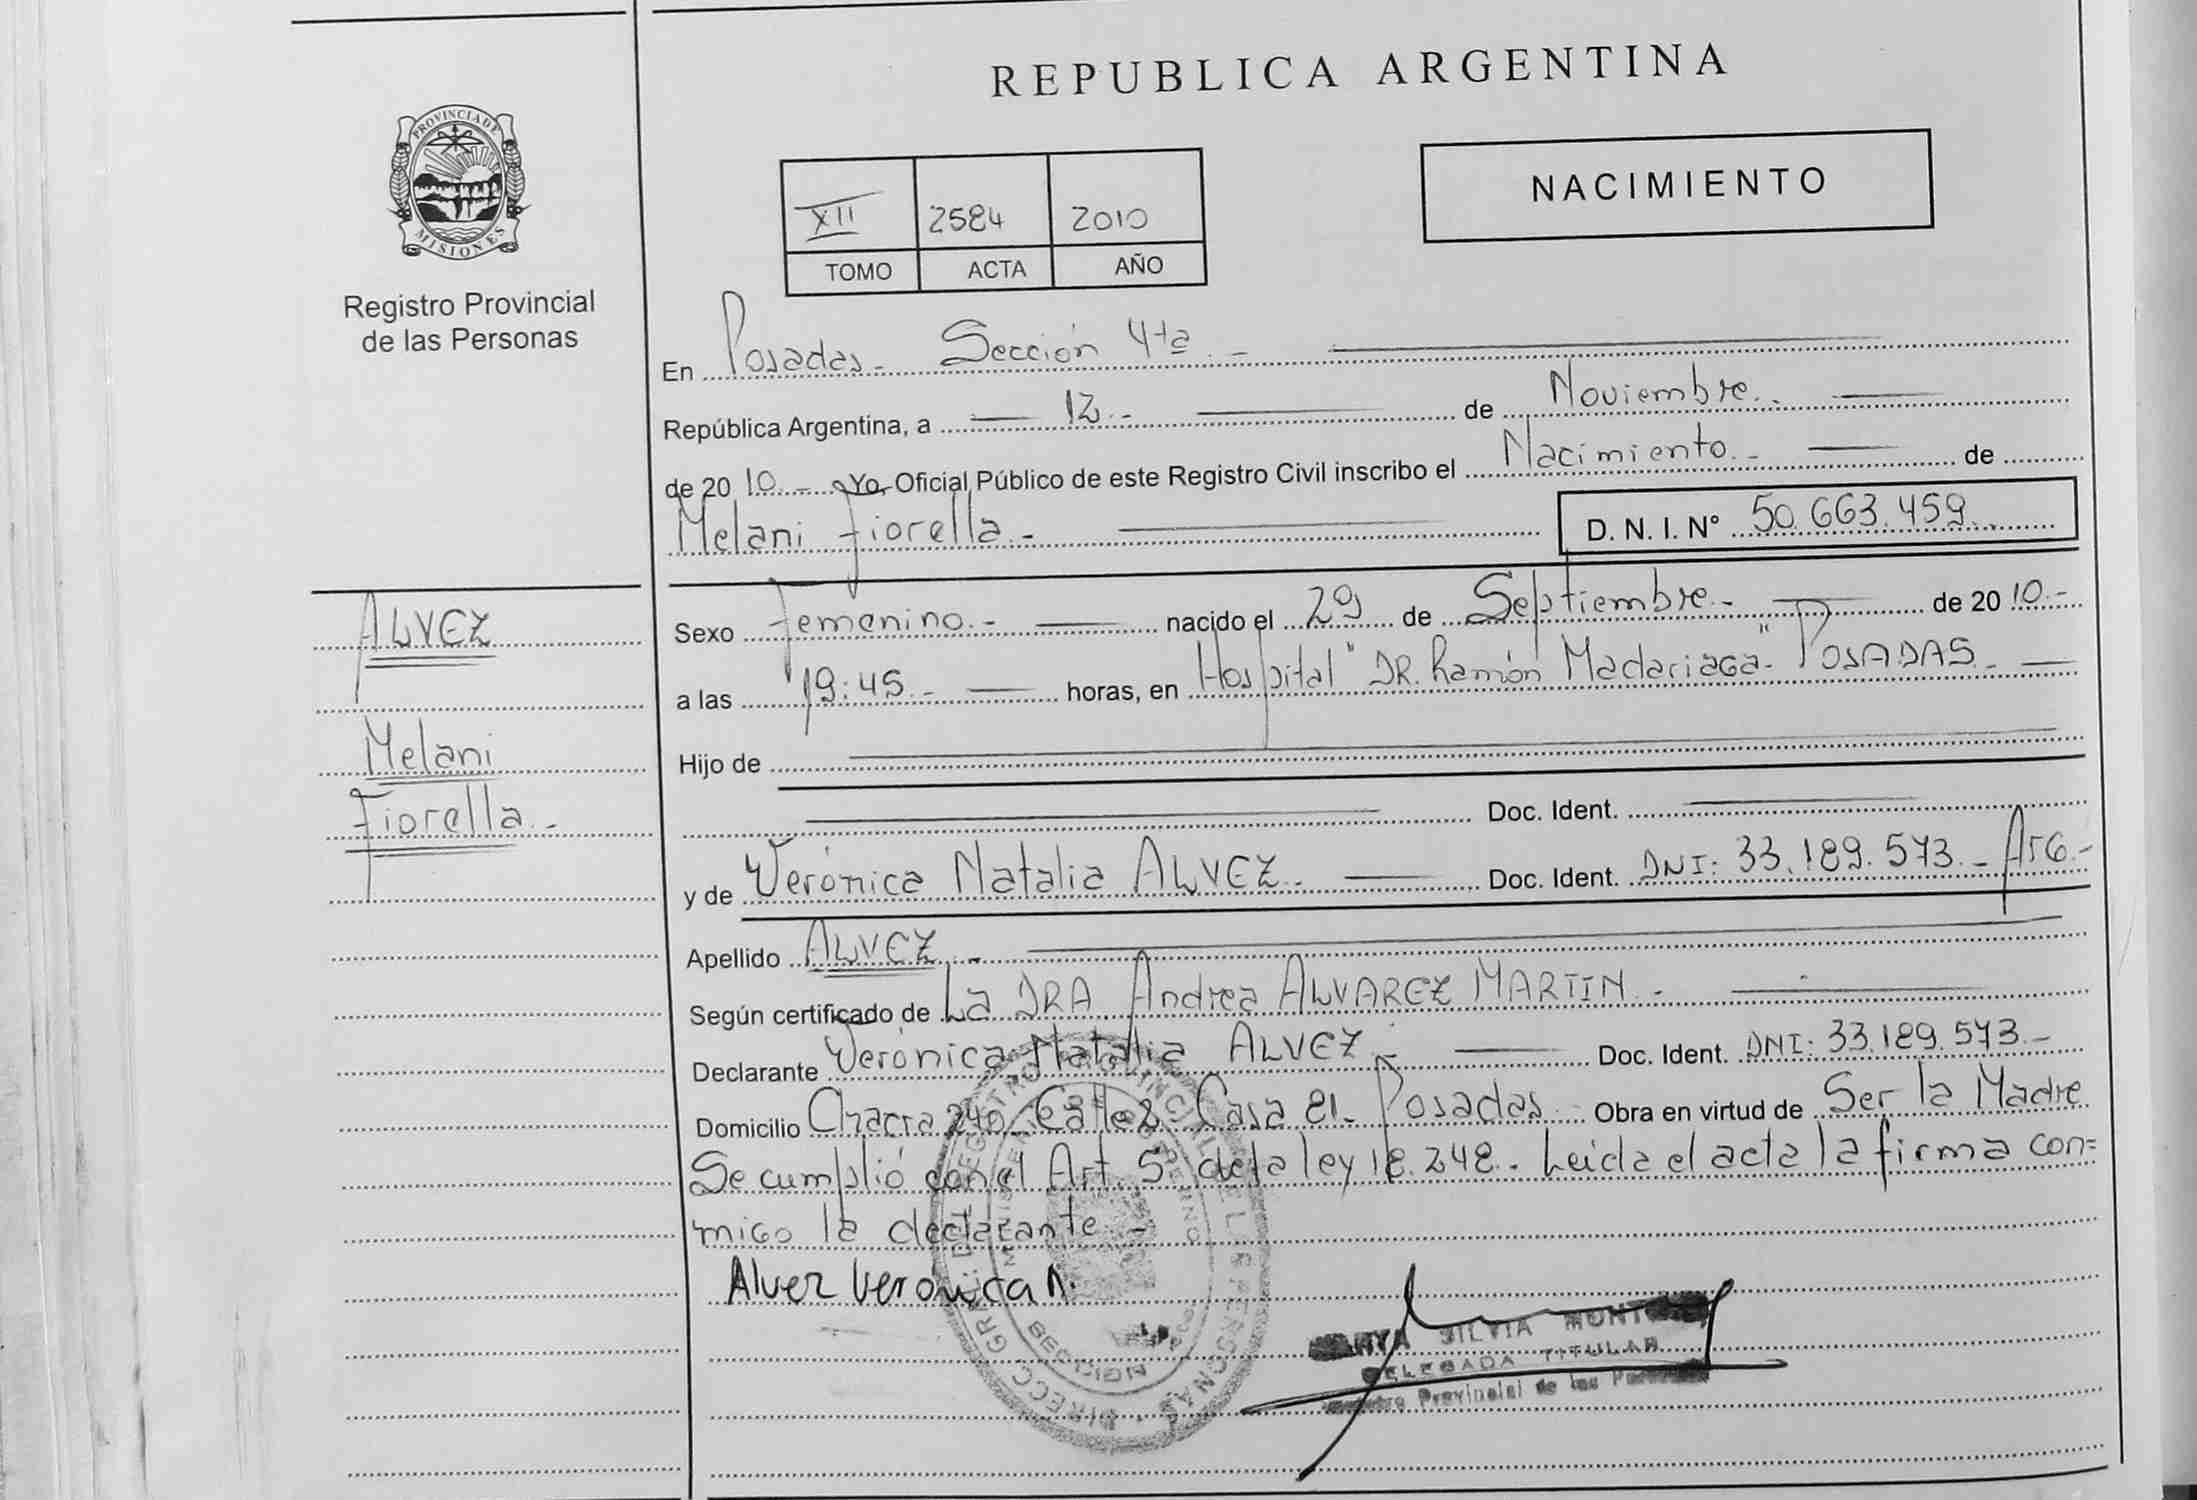 REPUBLICA ARGENTINA
PROVINCIA DE MISIONES
Registro Provincial
de las Personas
NACIMIENTO
XII 2584 2010
TOMO ACTA AÑO
En Posadas - Sección 4ta. -
República Argentina, a 12.- de Noviembre.-
de 2010.- Yo, Oficial Público de este Registro Civil inscribo el Nacimiento.- de
Melani Fiorella.- D. N. I. N° 50.663.459.
ALVEZ
Melani
Fiorella.-
Sexo Femenino.- nacido el 29 de Septiembre.- de 2010.-
a las 19:45.- horas, en Hospital "DR. Ramón Madariaga"- POSADAS.-
Hijo de
Doc. Ident.
y de Verónica Natalia ALVEZ.- Doc. Ident. DNI: 33.189.573.- Arg.-
Apellido ALVEZ.-
Según certificado de La DRA Andrea ALVAREZ MARTIN.-
Declarante Verónica Natalia ALVEZ.- Doc. Ident. DNI: 33.189.573.-
Domicilio Chacra 240 Calle 2 Casa 81- Posadas.- Obra en virtud de Ser la Madre
Se cumplió con el Art. 5 de la ley 18.248.- Leida el acta la firma con=
migo la declarante.-
Alvez Veronica N.
SILVIA
DELEGADA TITULAR
Registro Provincial de las Personas